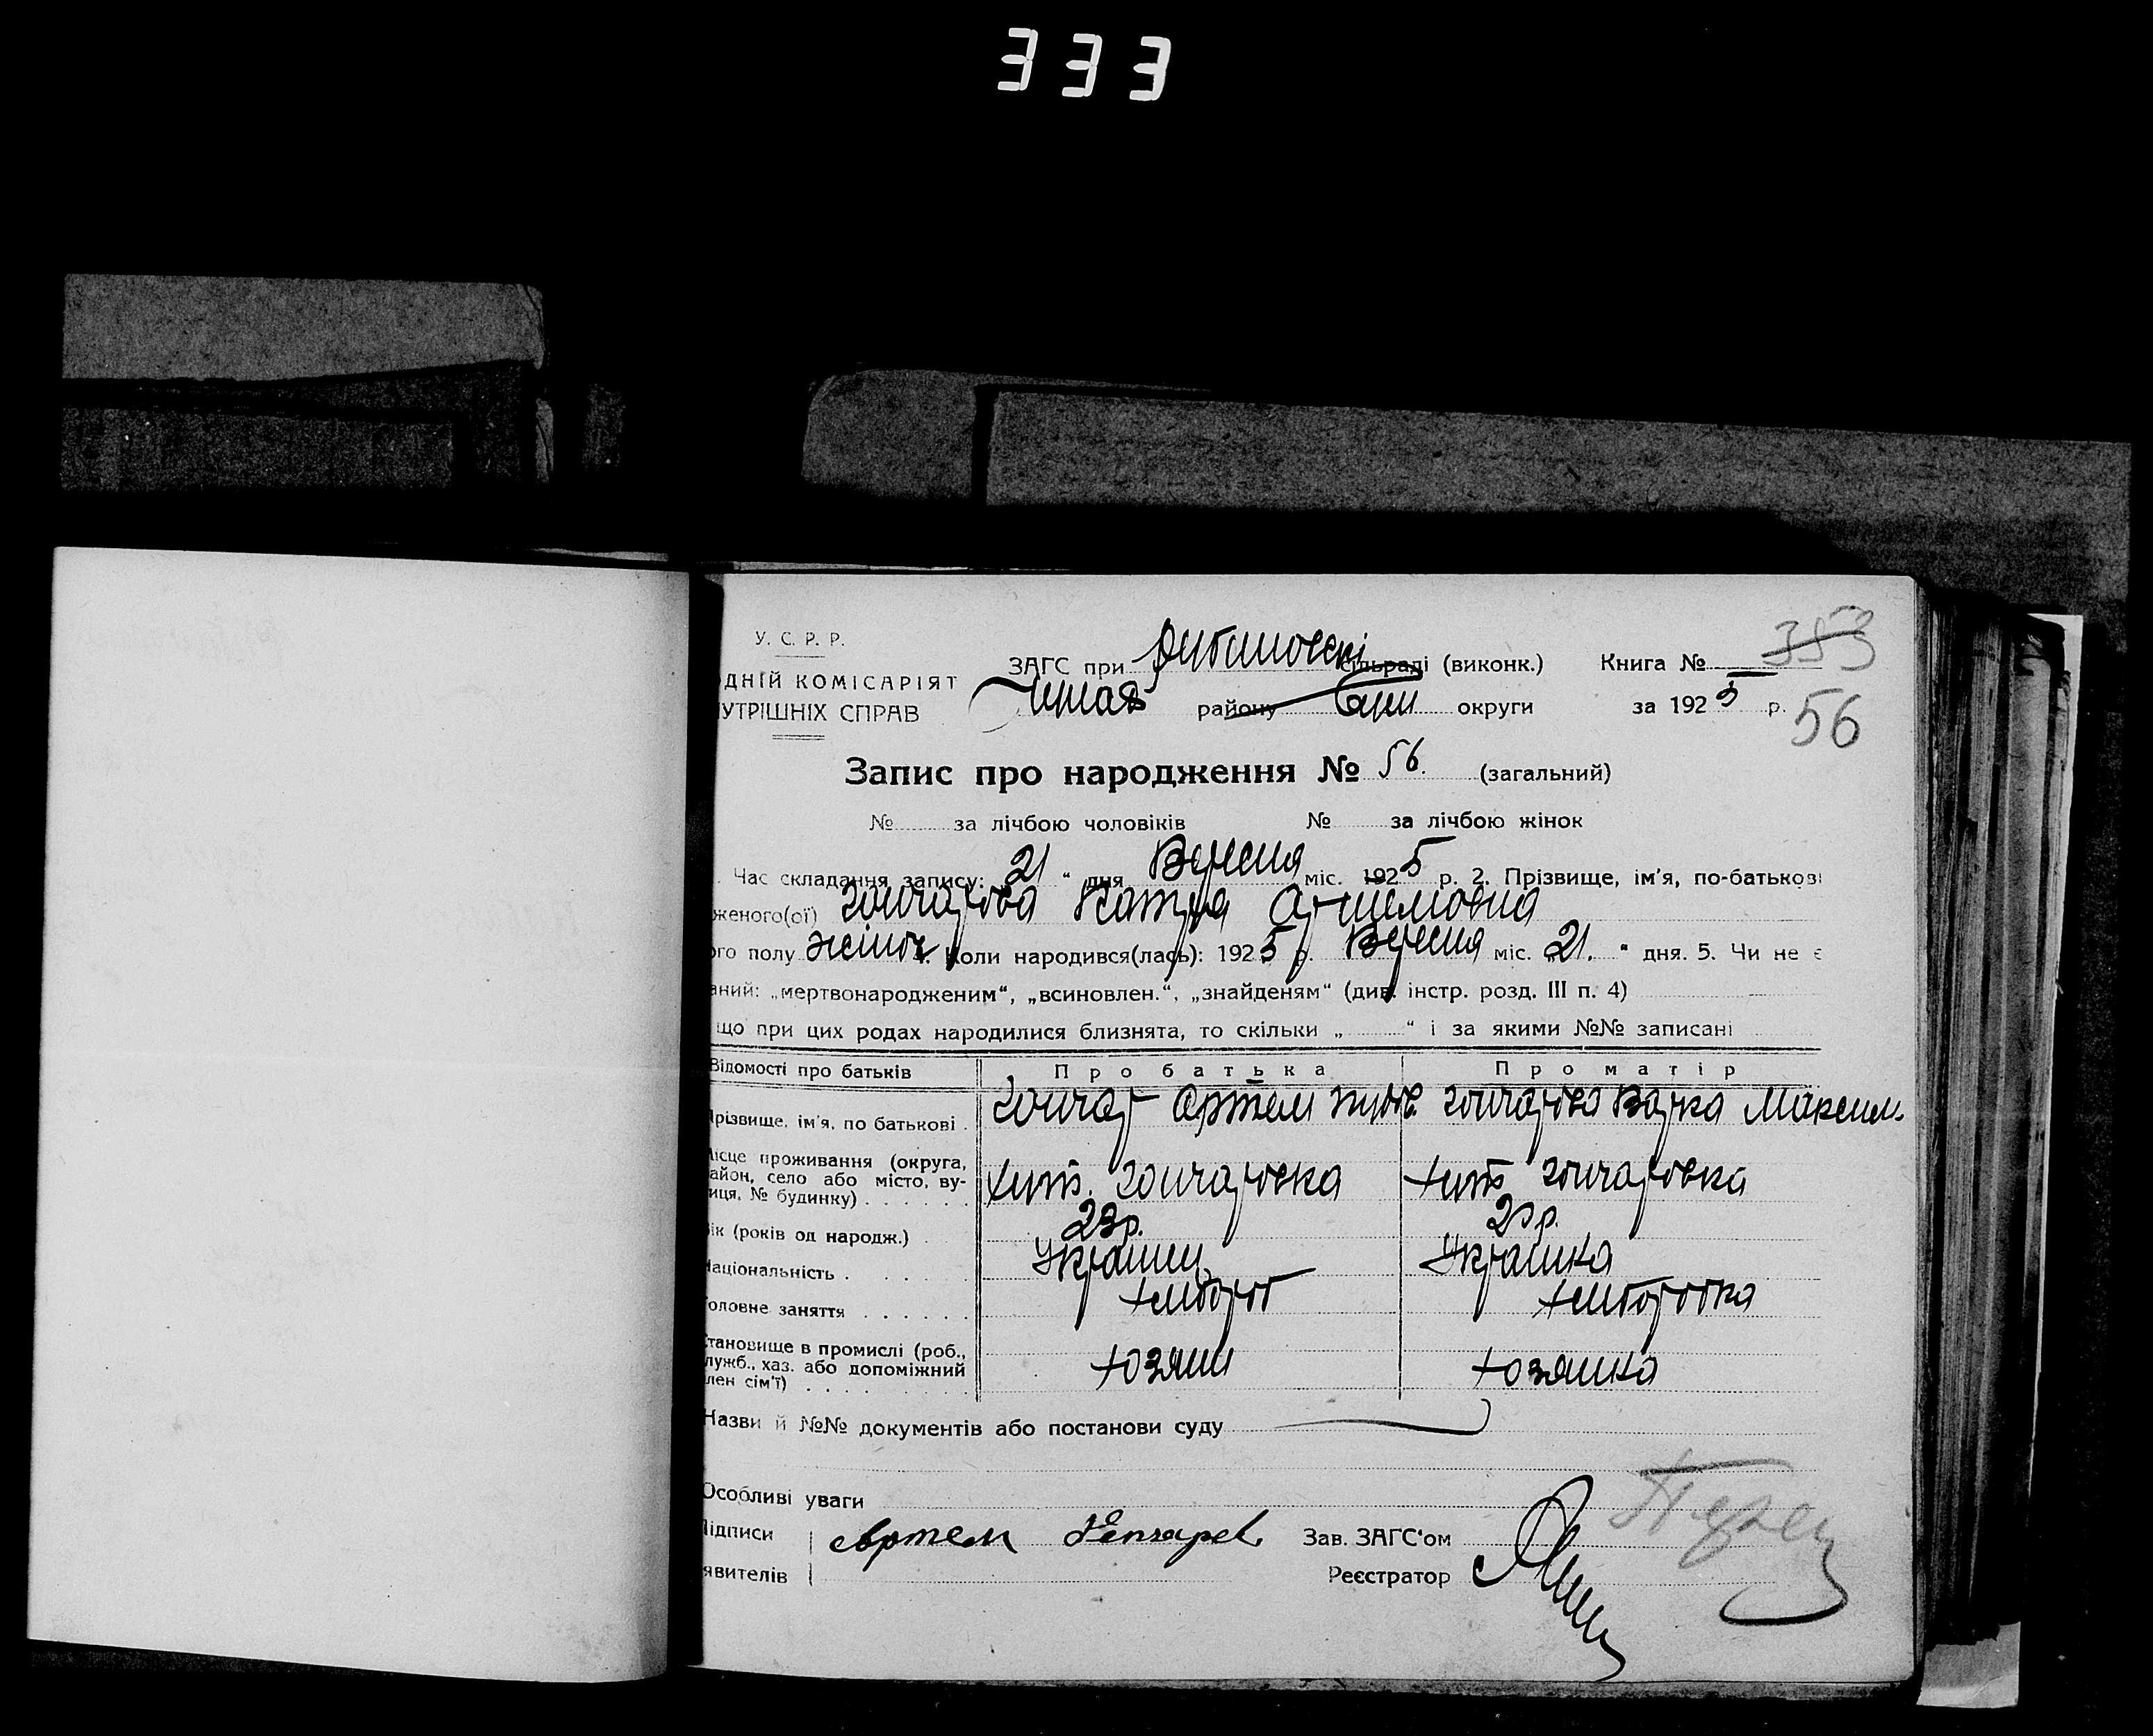 333
У. С. Р. Р.
ДНІЙ КОМІСАРІЯТ
УТРІШНІХ СПРАВ
ЗАГС при сільраді (виконк.) Книга № 353
району округи за 1925 р.
56
Запис про народження № 56. (загальний)
№ за лічбою чоловіків № за лічбою жінок
Час складання запису: 21 “ дня Вересня міс. 1925 р. 2. Прізвище, ім'я, по-батькові
женого(ої) Гончарова Катря Артемовна
ого полу жіноч. Коли народився(лась): 1925 р. Вересня міс. „21. “ дня. 5. Чи не є
аний: „мертвонародженим“, „всиновлен.“, „знайденям“ (див. інстр. розд. III п. 4)
що при цих родах народилися близнята, то скільки „ “ і за якими №№ записані
Відомості про батьків Про батька Про матір
Прізвище, ім'я, по батькові Гончар Артем Гончарова Варка Максим.
Місце проживання (округа,
район, село або місто, ву-
лиця, № будинку) хут. Гончаровка хут Гончаровка
Вік (років од народж.) 23р. р.
Національність Украинец Украинка
Головне заняття хлибороб хлиборобка
Становище в промислі (роб.,
служб., хаз. або допоміжний
член сім'ї) хозяин хозяика
Назви й №№ документів або постанови суду
Особливі уваги
Підписи Артем Гончарев Зав. ЗАГС'ом
явителів Реєстратор